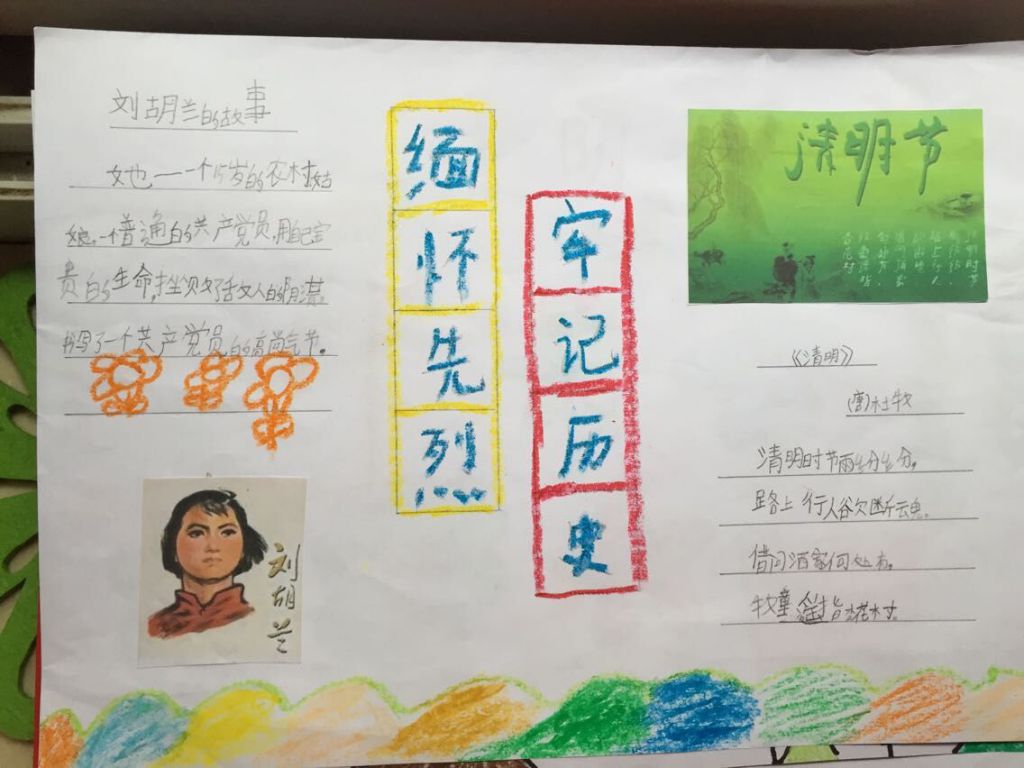 刘胡兰的故事
她一一个15岁的农村姑
娘,一个普通的共产党员,用自己宝
贵的生命,
书写了一个共产党员的高尚气节。
刘胡兰
缅怀先烈
牢记历史
清明节
《清明》
(唐)杜牧
清明时节雨纷纷,
路上行人欲断魂。
借问酒家何处有,
牧童遥指杏花村。